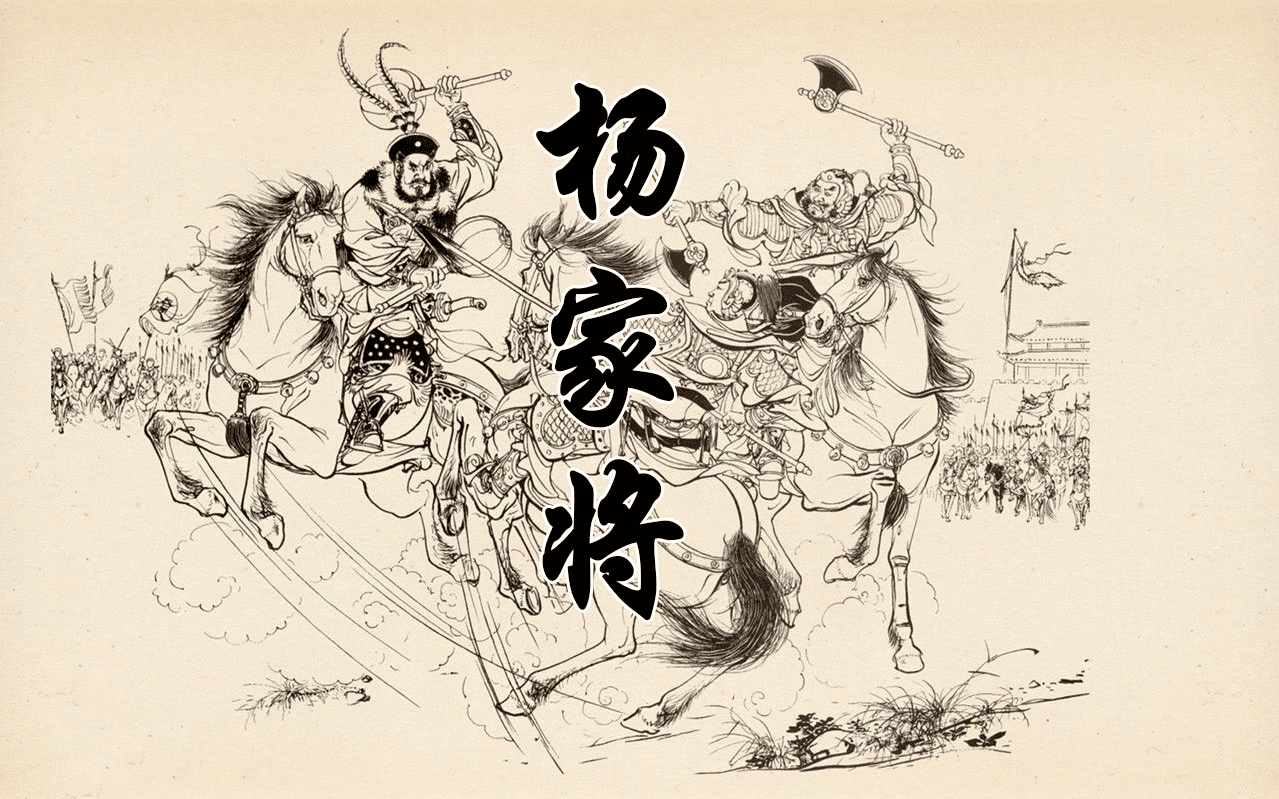 杨家将